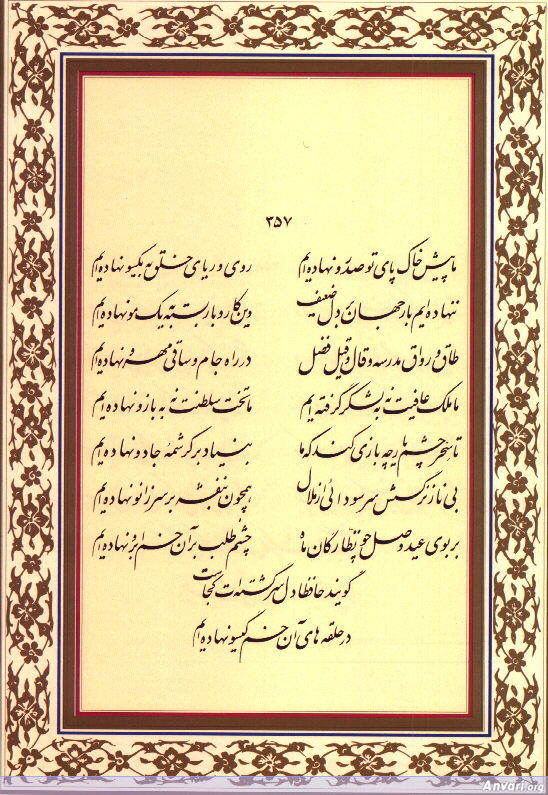 ۳۵۷
ما پیش خاک پای تو صد رو نهاده ایم روی و ریای خلق به یکسو نهاده ایم
ننهاده ایم بار جهان بر دل ضعیف وین کار و بار بسته به یک مو نهاده ایم
طاق و رواق مدرسه و قال و قیل فضل در راه جام و ساقی مهرو نهاده ایم
ما ملک عافیت نه به لشکر گرفته ایم ما تخت سلطنت نه به بازو نهاده ایم
تا سحر چشم یار چه بازی کند که ما بنیاد بر کرشمهٔ جادو نهاده ایم
بی ناز نرگسش سر سودائی از ملال همچون بنفشه بر سر زانو نهاده ایم
بر بوی عید وصل چو نظارگان ماه چشم طلب بر آن خم ابرو نهاده ایم
گویند حافظا دل سرگشته ات کجاست
در حلقه های آن خم گیسو نهاده ایم
Anvari.org